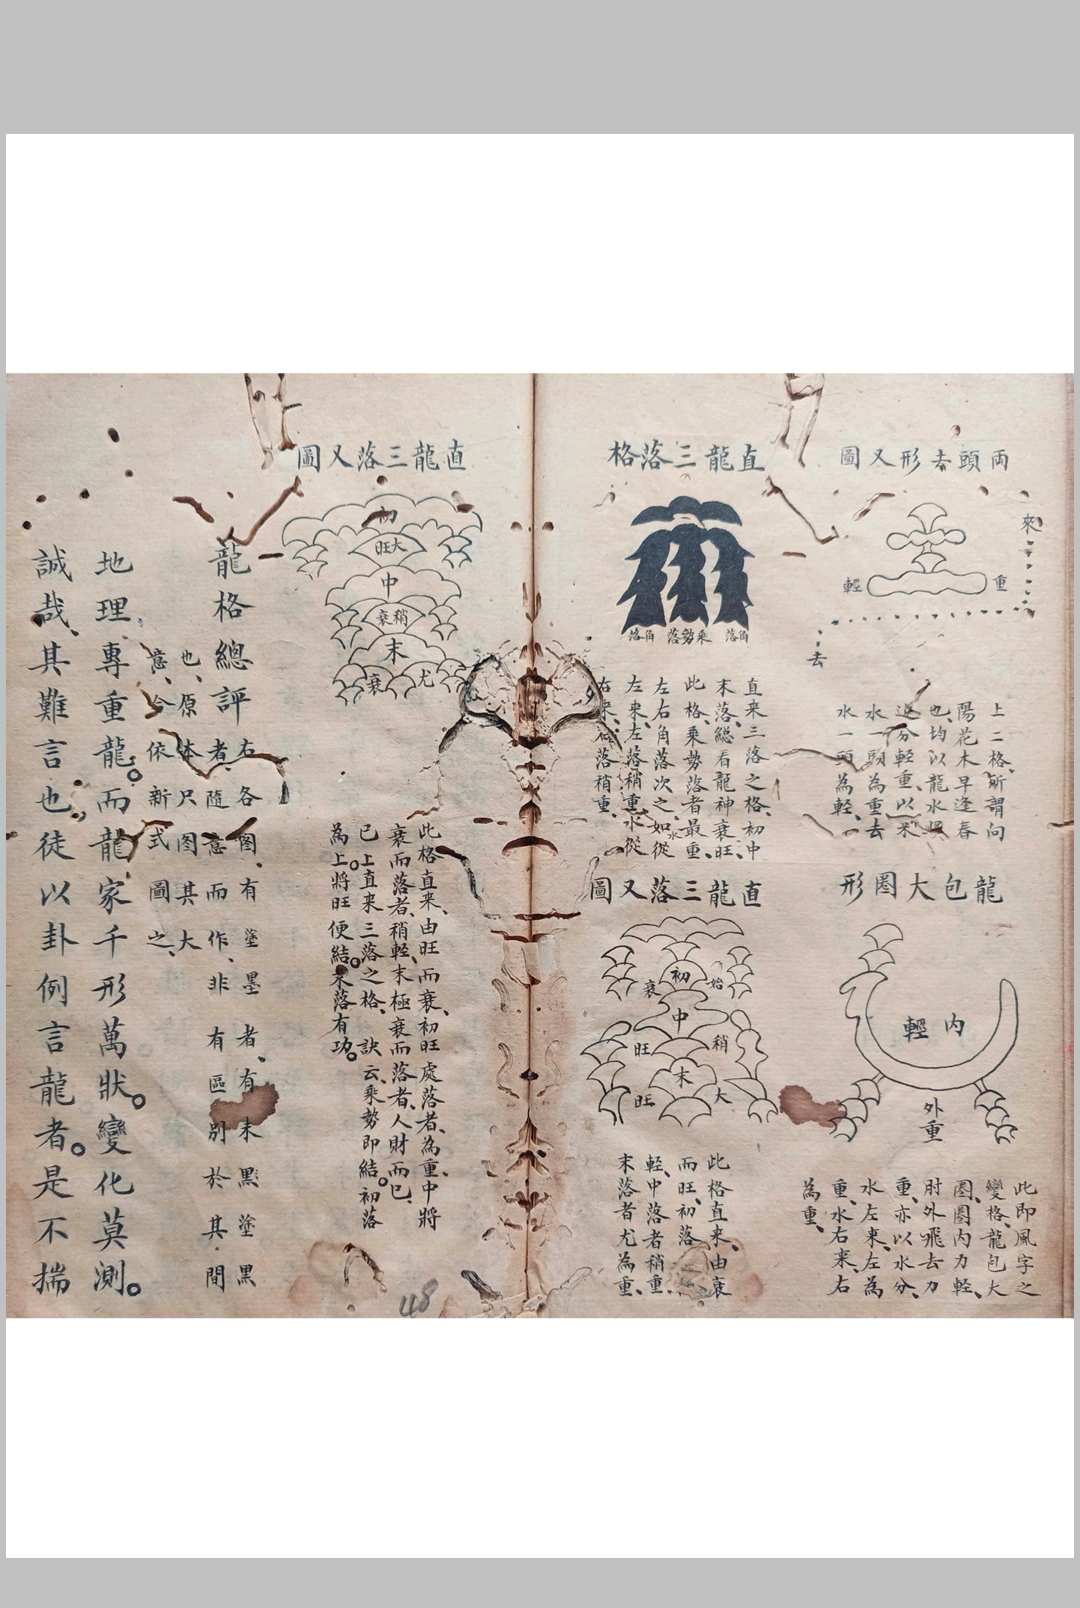 兩頭去形又圖
來
重
輕
去
上二格、所謂向
陽花木早逢春
也、均以龍水
分輕重、以來
水一頭為重、去
水一頭為輕、
龍包大圈形
內輕
外重
此即風字之
變格、龍包大
圈、圈內力輕、
肘外飛去力
重、亦以水分、
水左來、左為
重、水右來、右
為重、
直龍三落格
角落
乘勢落
角落
直來三落之格、初中
末落、總看龍神衰旺、
此格、乘勢落者最重、
左右角落次之、如水從
左來、左落稍重、水從
右來、右落稍重、
直龍三落又圖
初
始
衰
中
稍
旺
末
大
旺
此格直來、由衰
而旺、初落
輕、中落者稍重、
末落者尤為重、
直龍三落又圖
初
大旺
中
稍衰
末
尤
衰
此格直來、由旺而衰、初旺處落者、為重、中將
衰而落者、稍輕、末極衰而落者、人財而已、
已上直來三落之格、訣云、乘勢即結。初落
為上。將旺便結。末落有功。
龍格總評
右各图、有塗墨者、有未黑塗黑
者、隨意而作、非有區別於其間
也、原本只图其大
意、今依新式圖之、
地理專重龍。而龍家千形萬狀。變化莫測。
誠哉、其難言也徒以卦例言龍者。是不揣
48